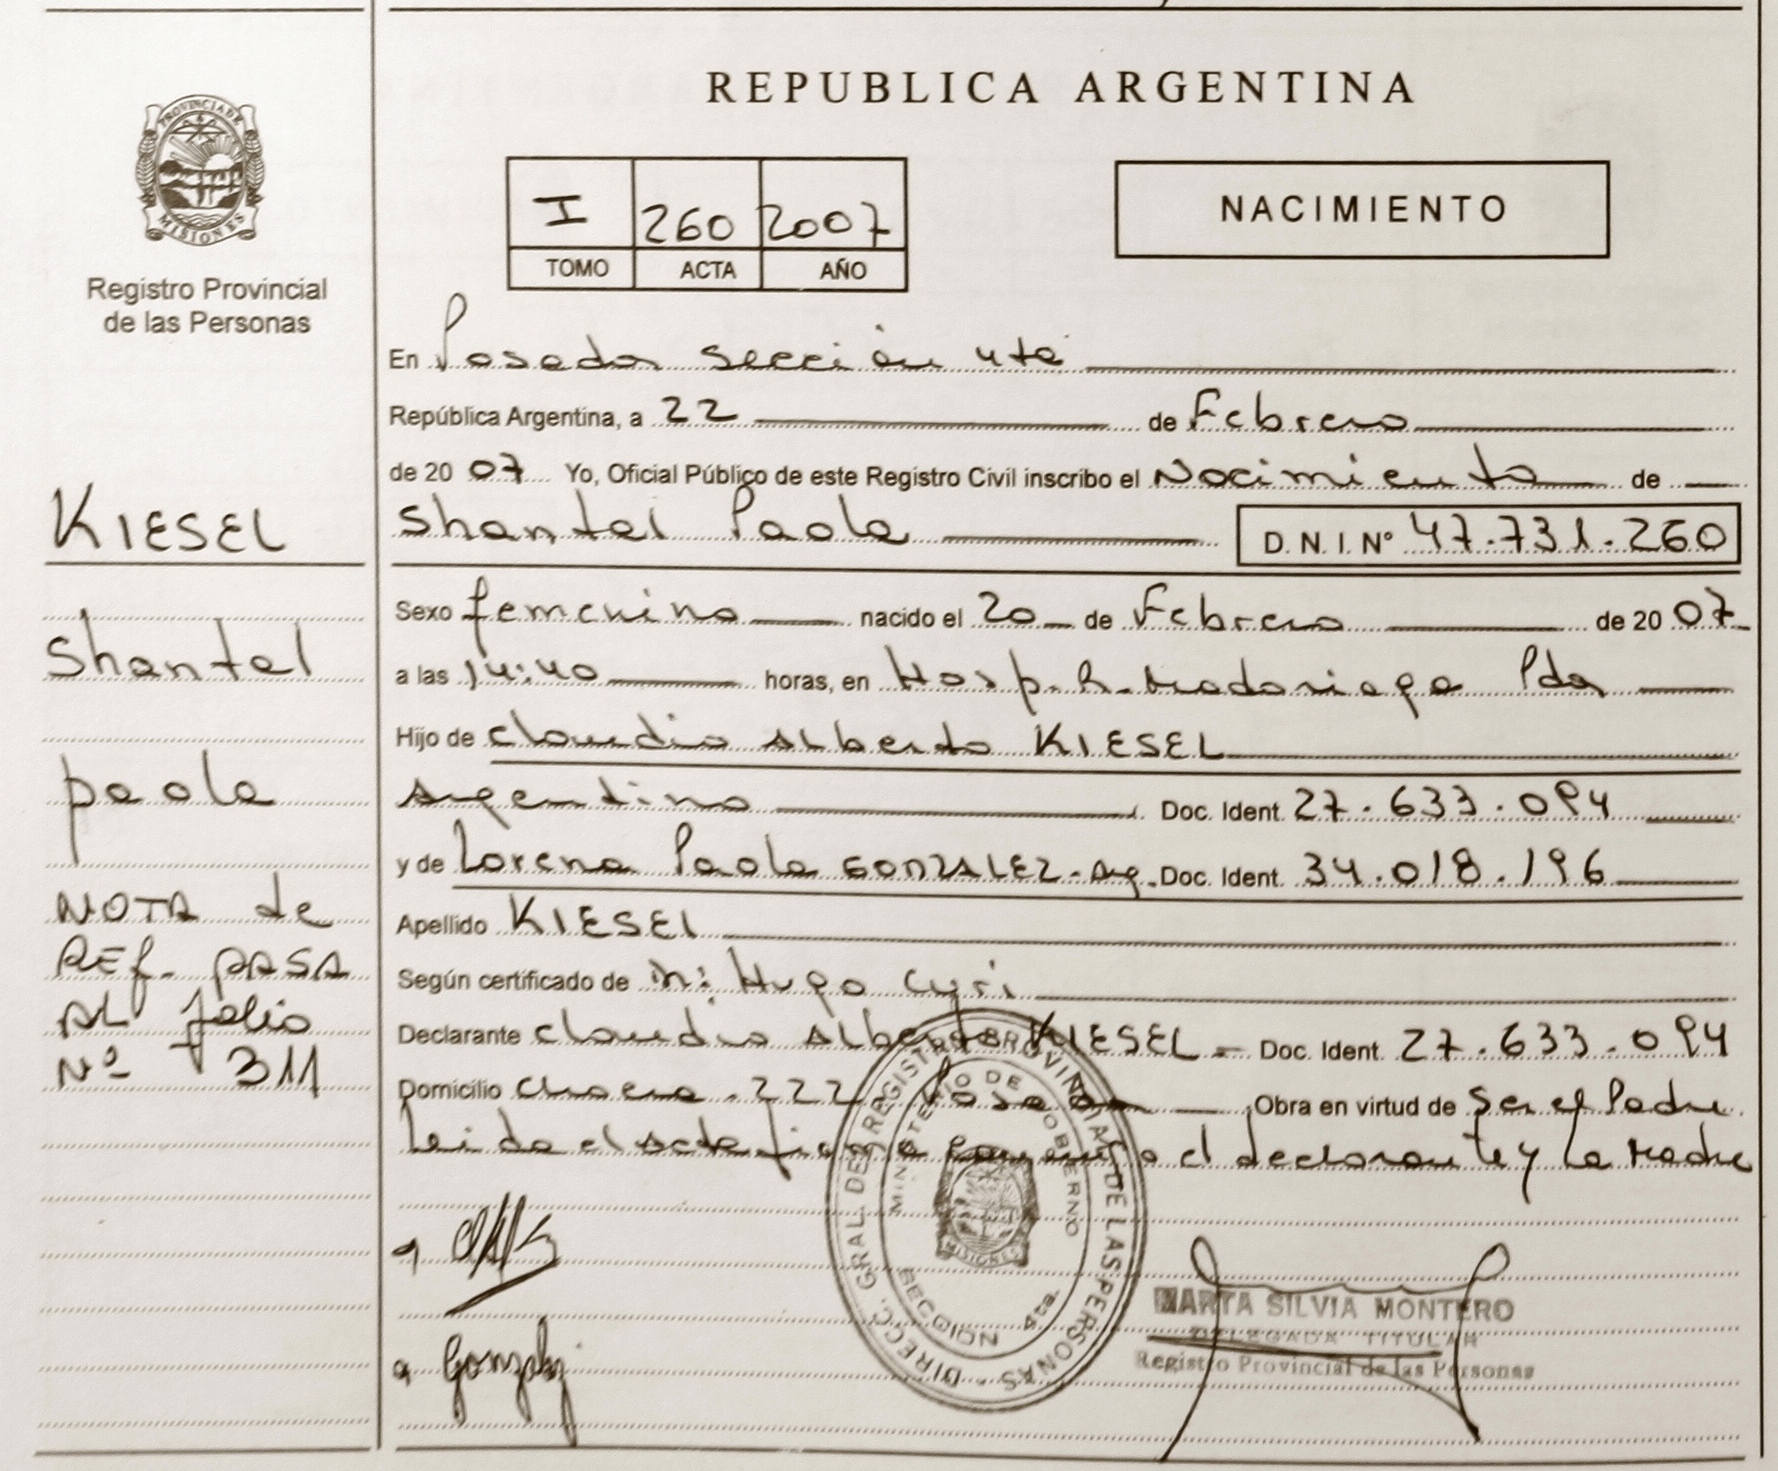 REPUBLICA ARGENTINA
PROVINCIA DE MISIONES
Registro Provincial
de las Personas
I 260 2007
TOMO ACTA AÑO
NACIMIENTO
En Posadas sección 4ta
República Argentina, a 22 de Febrero
de 2007 Yo, Oficial Público de este Registro Civil inscribo el Nacimiento de
Shantal Paola D. N. I. N° 47.731.260
Sexo femenino nacido el 20 de Febrero de 2007
a las 14:40 horas, en Hosp. R. Madariaga Pdas
Hijo de Claudio Alberto KIESEL
Argentino Doc. Ident. 27.633.094
y de Lorena Paola GONZALEZ - Arg. Doc. Ident. 34.018.196
Apellido KIESEL
Según certificado de Hugo Cyri
Declarante Claudio Alberto KIESEL - Doc. Ident. 27.633.094
Domicilio Chacra 222 Posadas Obra en virtud de Ser el Padre
Leida el acta firma conmigo el declarante y la Madre
KIESEL
Shantal
paola
NOTA de
REf. PASA
AL folio
Nº 311
DIRECC. GRAL. DEL REGISTRO PROVINCIAL DE LAS PERSONAS
MINISTERIO DE GOBIERNO
MISIONES
SECCION 4ta.
Gonzalez
MARTA SILVIA MONTERO
DELEGADA TITULAR
Registro Provincial de las Personas